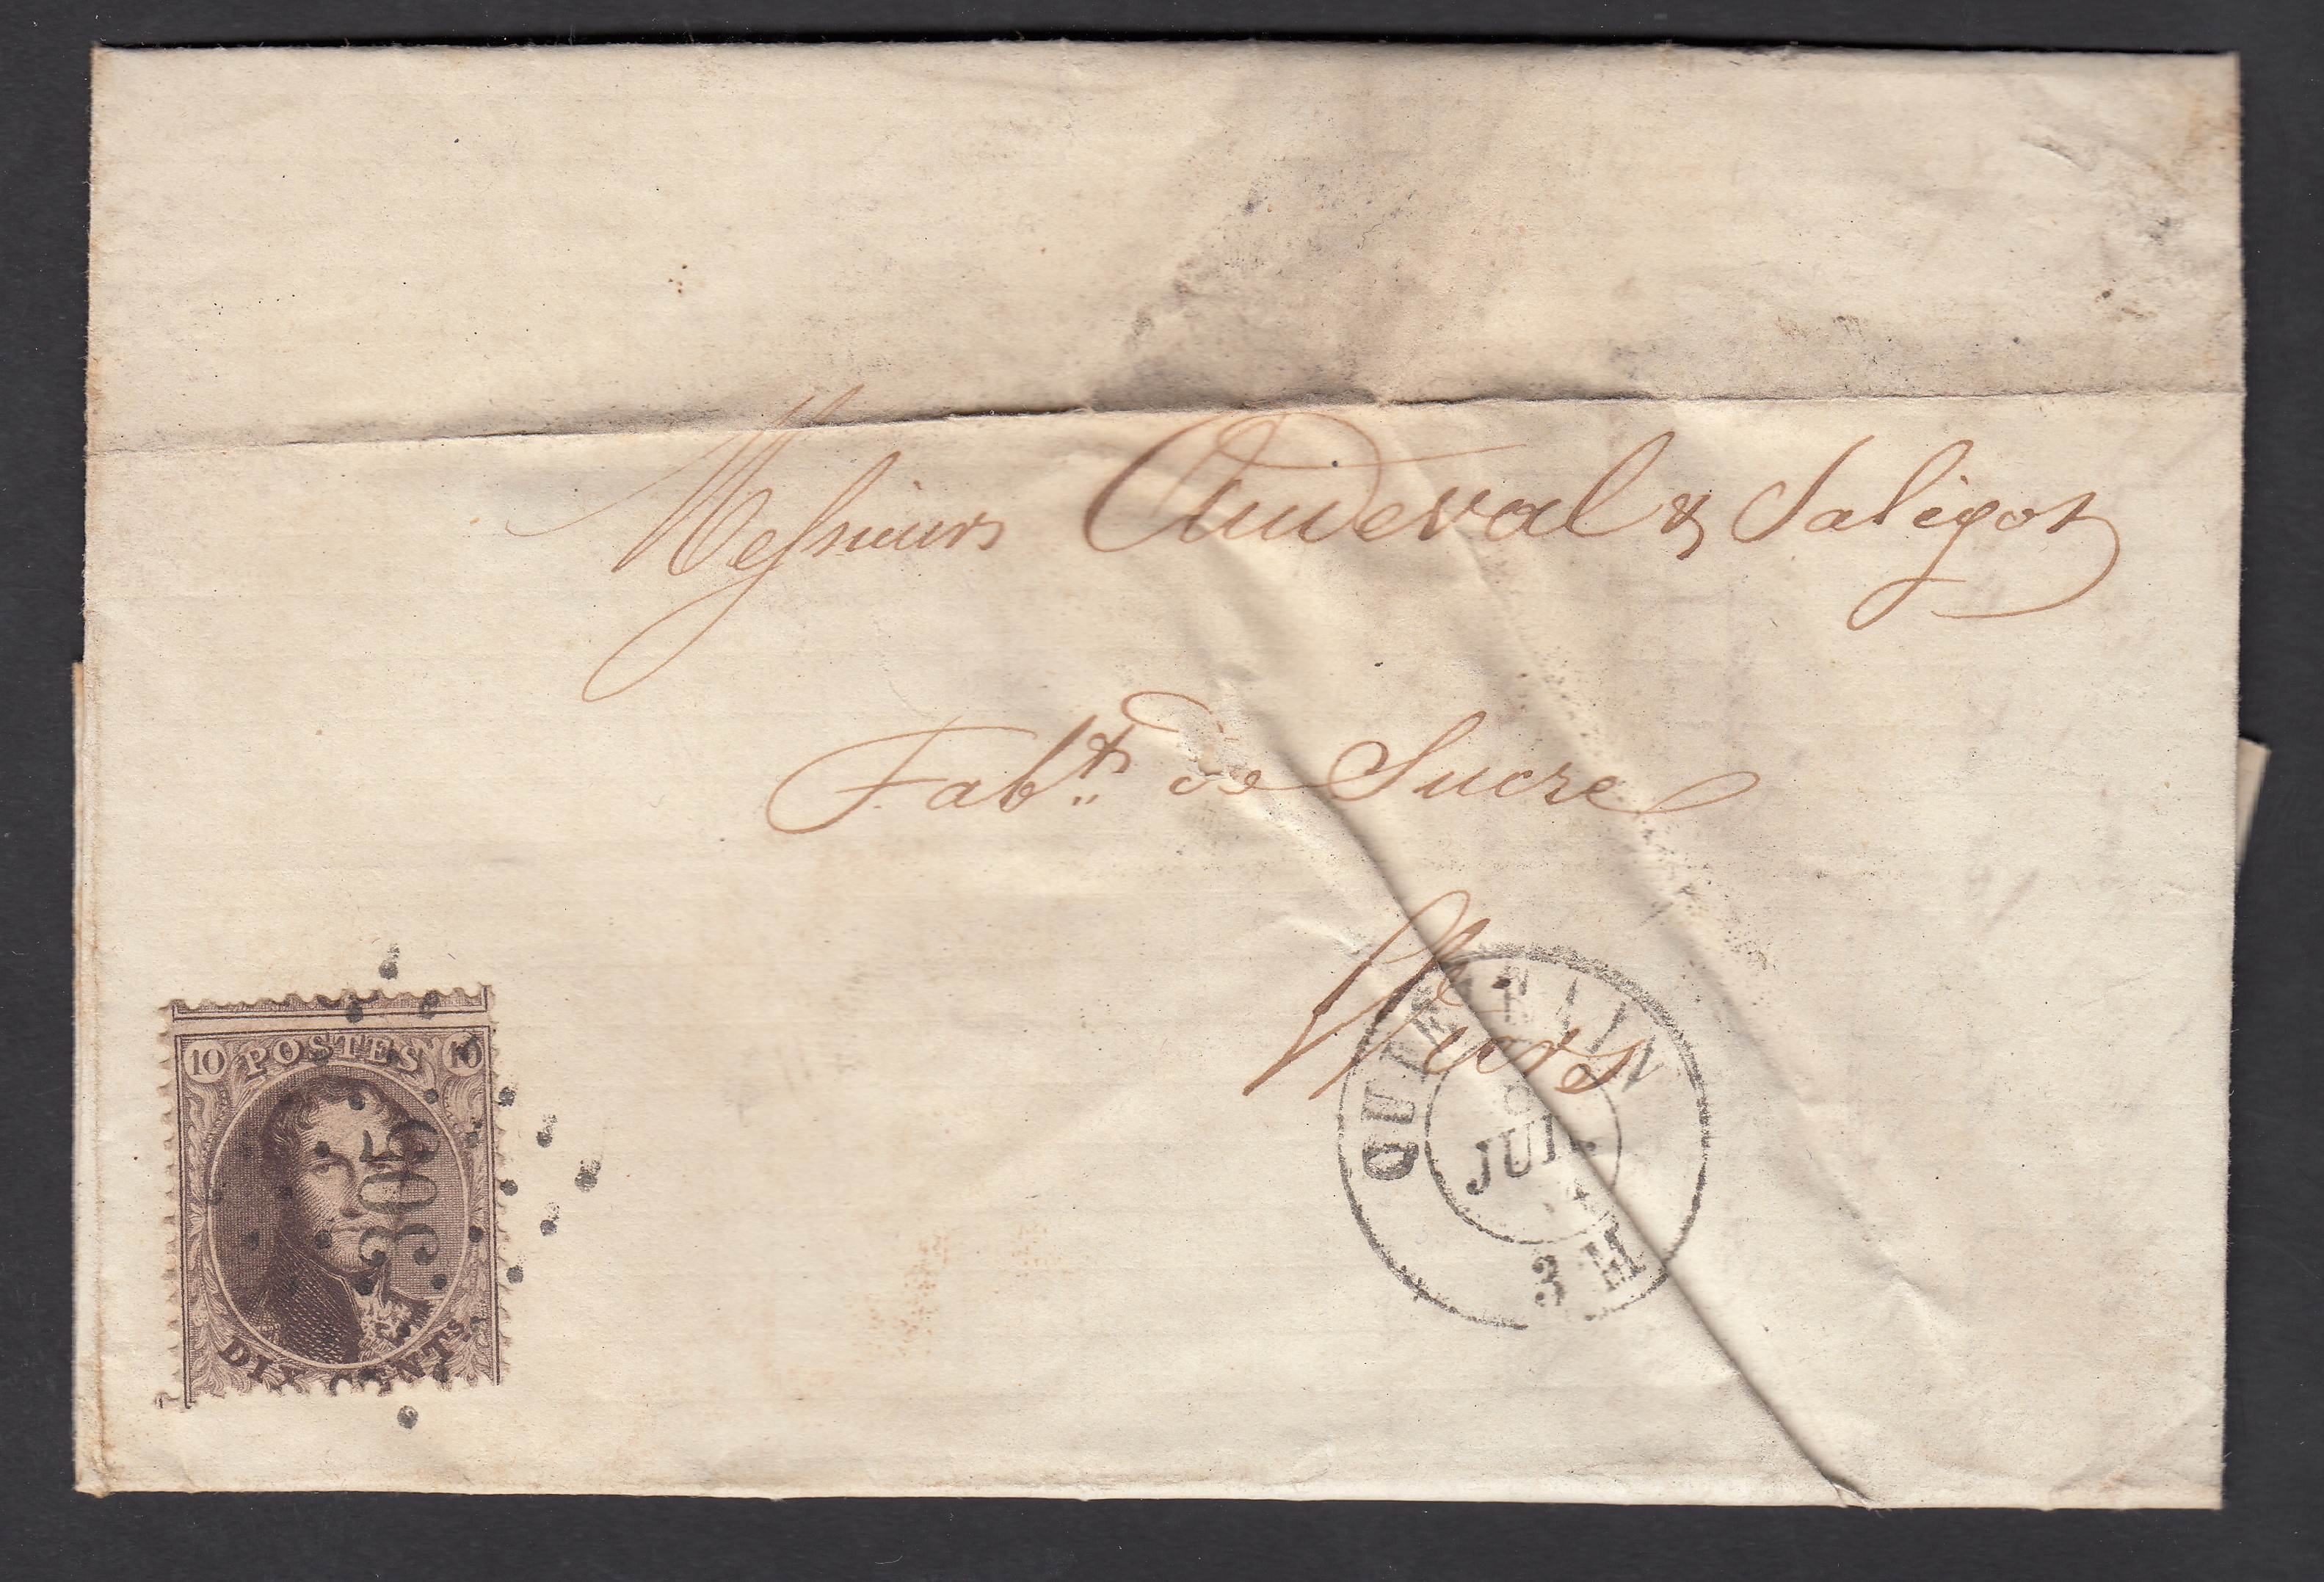 Messieurs Cuideval & Saligot
Fab.ts de Sucre
Wiers
10 POSTES 10
305
DIX CENTS
QUIEVRAIN
JUIL
3 M